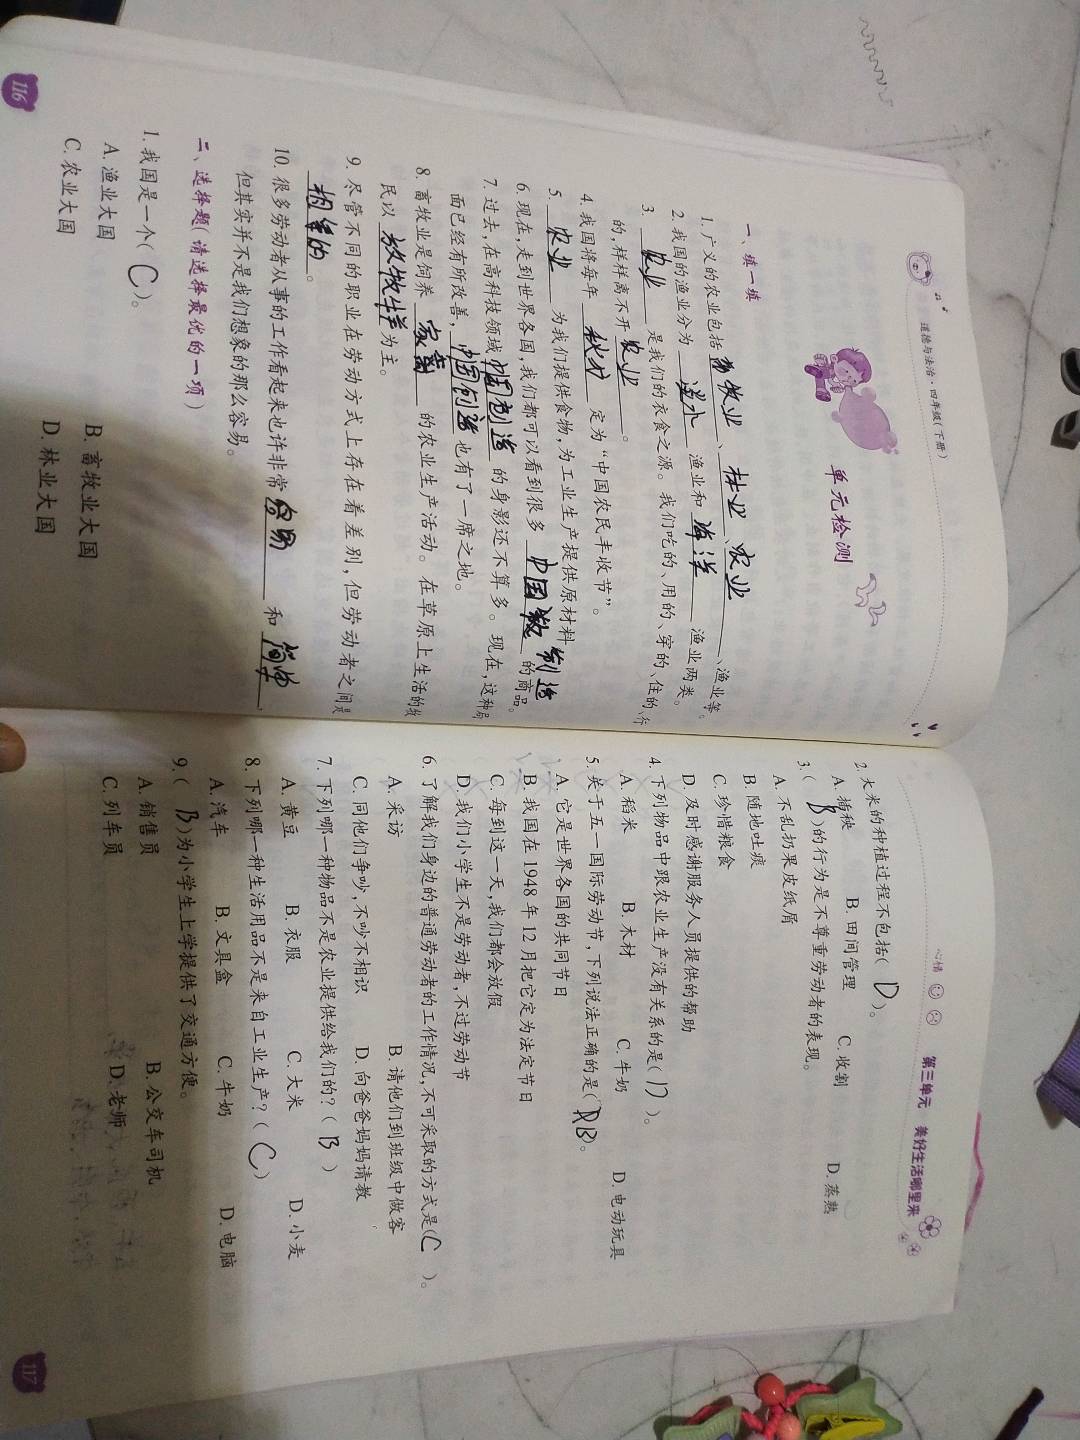 道德与法治·四年级(下册)
单元检测
一、填一填
1. 广义的农业包括 畜牧业 、 林业 、 农业 、渔业等。
2. 我国的渔业分为 淡水 渔业和 海洋 渔业两类。
3. 农业 是我们的衣食之源。我们吃的、用的、穿的、住的、行
的,样样离不开 农业 。
4. 我国将每年 秋分 定为“中国农民丰收节”。
5. 农业 为我们提供食物,为工业生产提供原材料。
6. 现在,走到世界各国,我们都可以看到很多 中国 制造 的商品。
7. 过去,在高科技领域 中国创造 的身影还不算多。现在,这种局
面已经有所改善, 中国创造 也有了一席之地。
8. 畜牧业是饲养 家畜 的农业生产活动。在草原上生活的牧
民以 放牧牛羊 为主。
9. 尽管不同的职业在劳动方式上存在着差别,但劳动者之间是
相等的 。
10. 很多劳动者从事的工作看起来也许非常 容易 和 简单 ,
但其实并不是我们想象的那么容易。
二、选择题(请选择最优的一项)
1. 我国是一个( C )。
A. 渔业大国 B. 畜牧业大国
C. 农业大国 D. 林业大国
116
心情 第三单元 美好生活哪里来
2. 大米的种植过程不包括( D )。
A. 插秧 B. 田间管理 C. 收割 D. 蒸熟
3. ( B )的行为是不尊重劳动者的表现。
A. 不乱扔果皮纸屑
B. 随地吐痰
C. 珍惜粮食
D. 及时感谢服务人员提供的帮助
4. 下列物品中跟农业生产没有关系的是( D )。
A. 稻米 B. 木材 C. 牛奶 D. 电动玩具
5. 关于五一国际劳动节,下列说法正确的是( B )。
A. 它是世界各国的共同节日
B. 我国在1948年12月把它定为法定节日
C. 每到这一天,我们都会放假
D. 我们小学生不是劳动者,不过劳动节
6. 了解我们身边的普通劳动者的工作情况,不可采取的方式是( C )。
A. 采访 B. 请他们到班级中做客
C. 同他们争吵,不吵不相识 D. 向爸爸妈妈请教
7. 下列哪一种物品不是农业提供给我们的?( B )
A. 黄豆 B. 衣服 C. 大米 D. 小麦
8. 下列哪一种生活用品不是来自工业生产?( C )
A. 汽车 B. 文具盒 C. 牛奶 D. 电脑
9. ( B )为小学生上学提供了交通方便。
A. 销售员 B. 公交车司机
C. 列车员 D. 老师
117